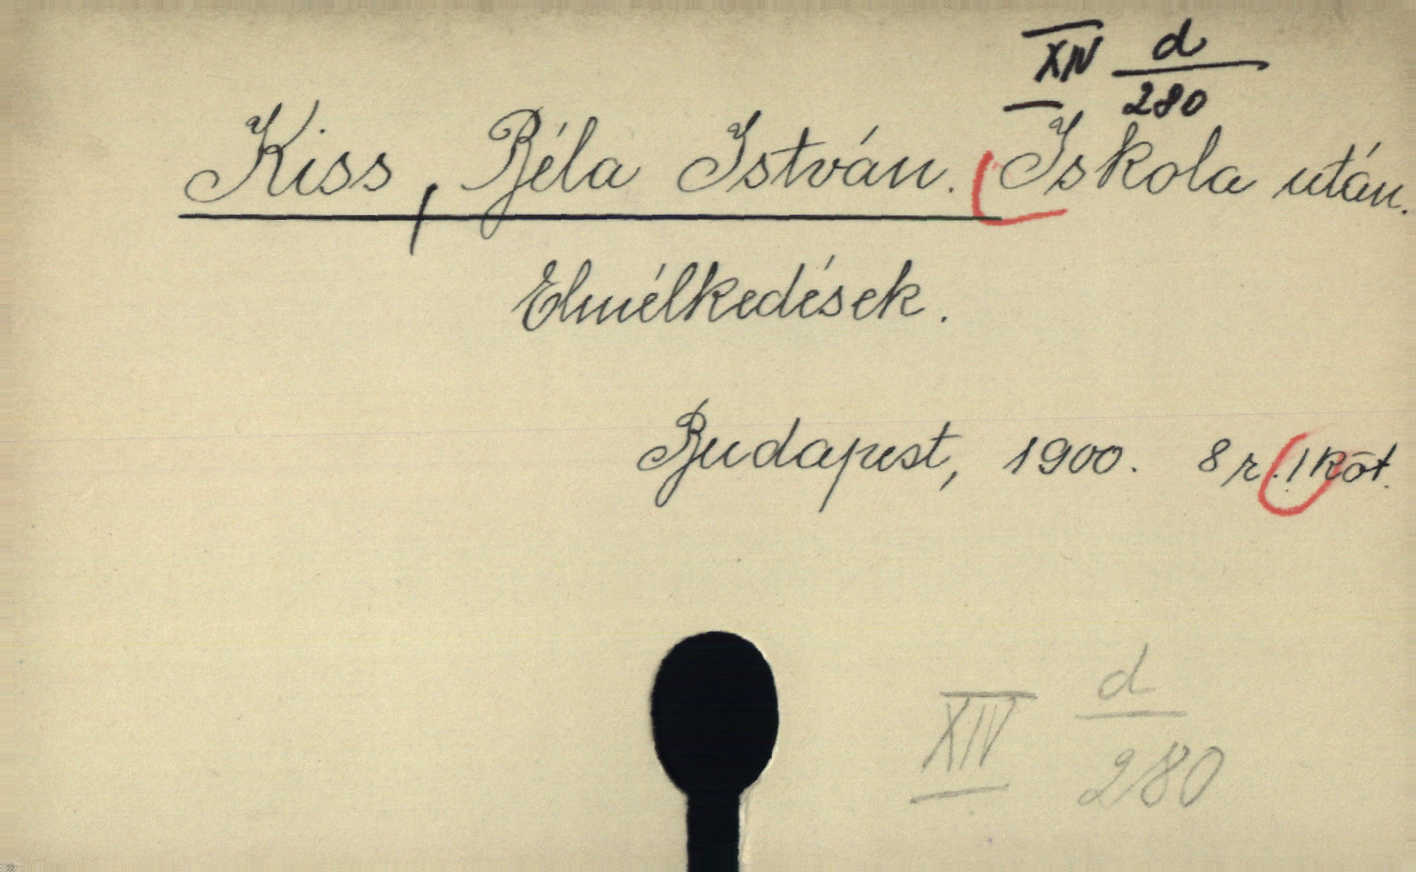 XIV d/280
Kiss, Béla István. Iskola után.
Elmélkedések.
Budapest, 1900. 8 r. 1 köt.
XIV d/280